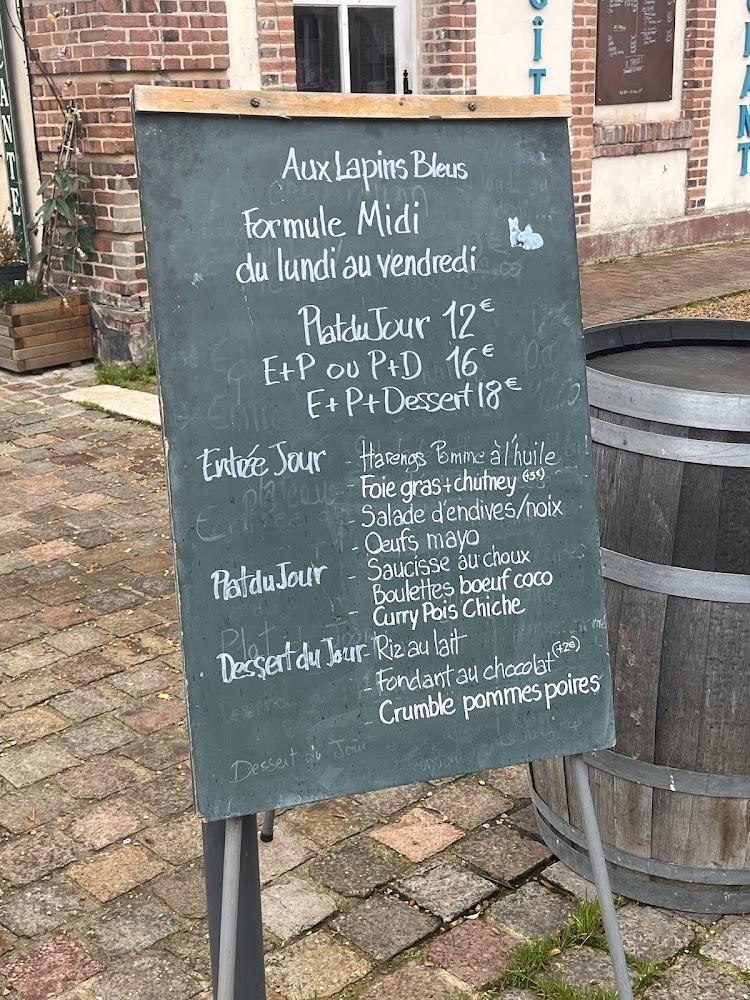 Aux Lapins Bleus
Formule Midi
du lundi au vendredi
Plat du Jour 12€
E+P ou P+D 16€
E+P+Dessert 18€
Entrée Jour - Harengs Pomme à l'huile
- Foie gras+chutney (+5€)
- Salade d'endives/noix
- Oeufs mayo
Plat du Jour - Saucisse au choux
- Boulettes boeuf coco
- Curry Pois Chiche
Dessert du Jour - Riz au lait
- Fondant au chocolat (+2€)
- Crumble pommes poires
Dessert du Jour
GÎT
ANTE